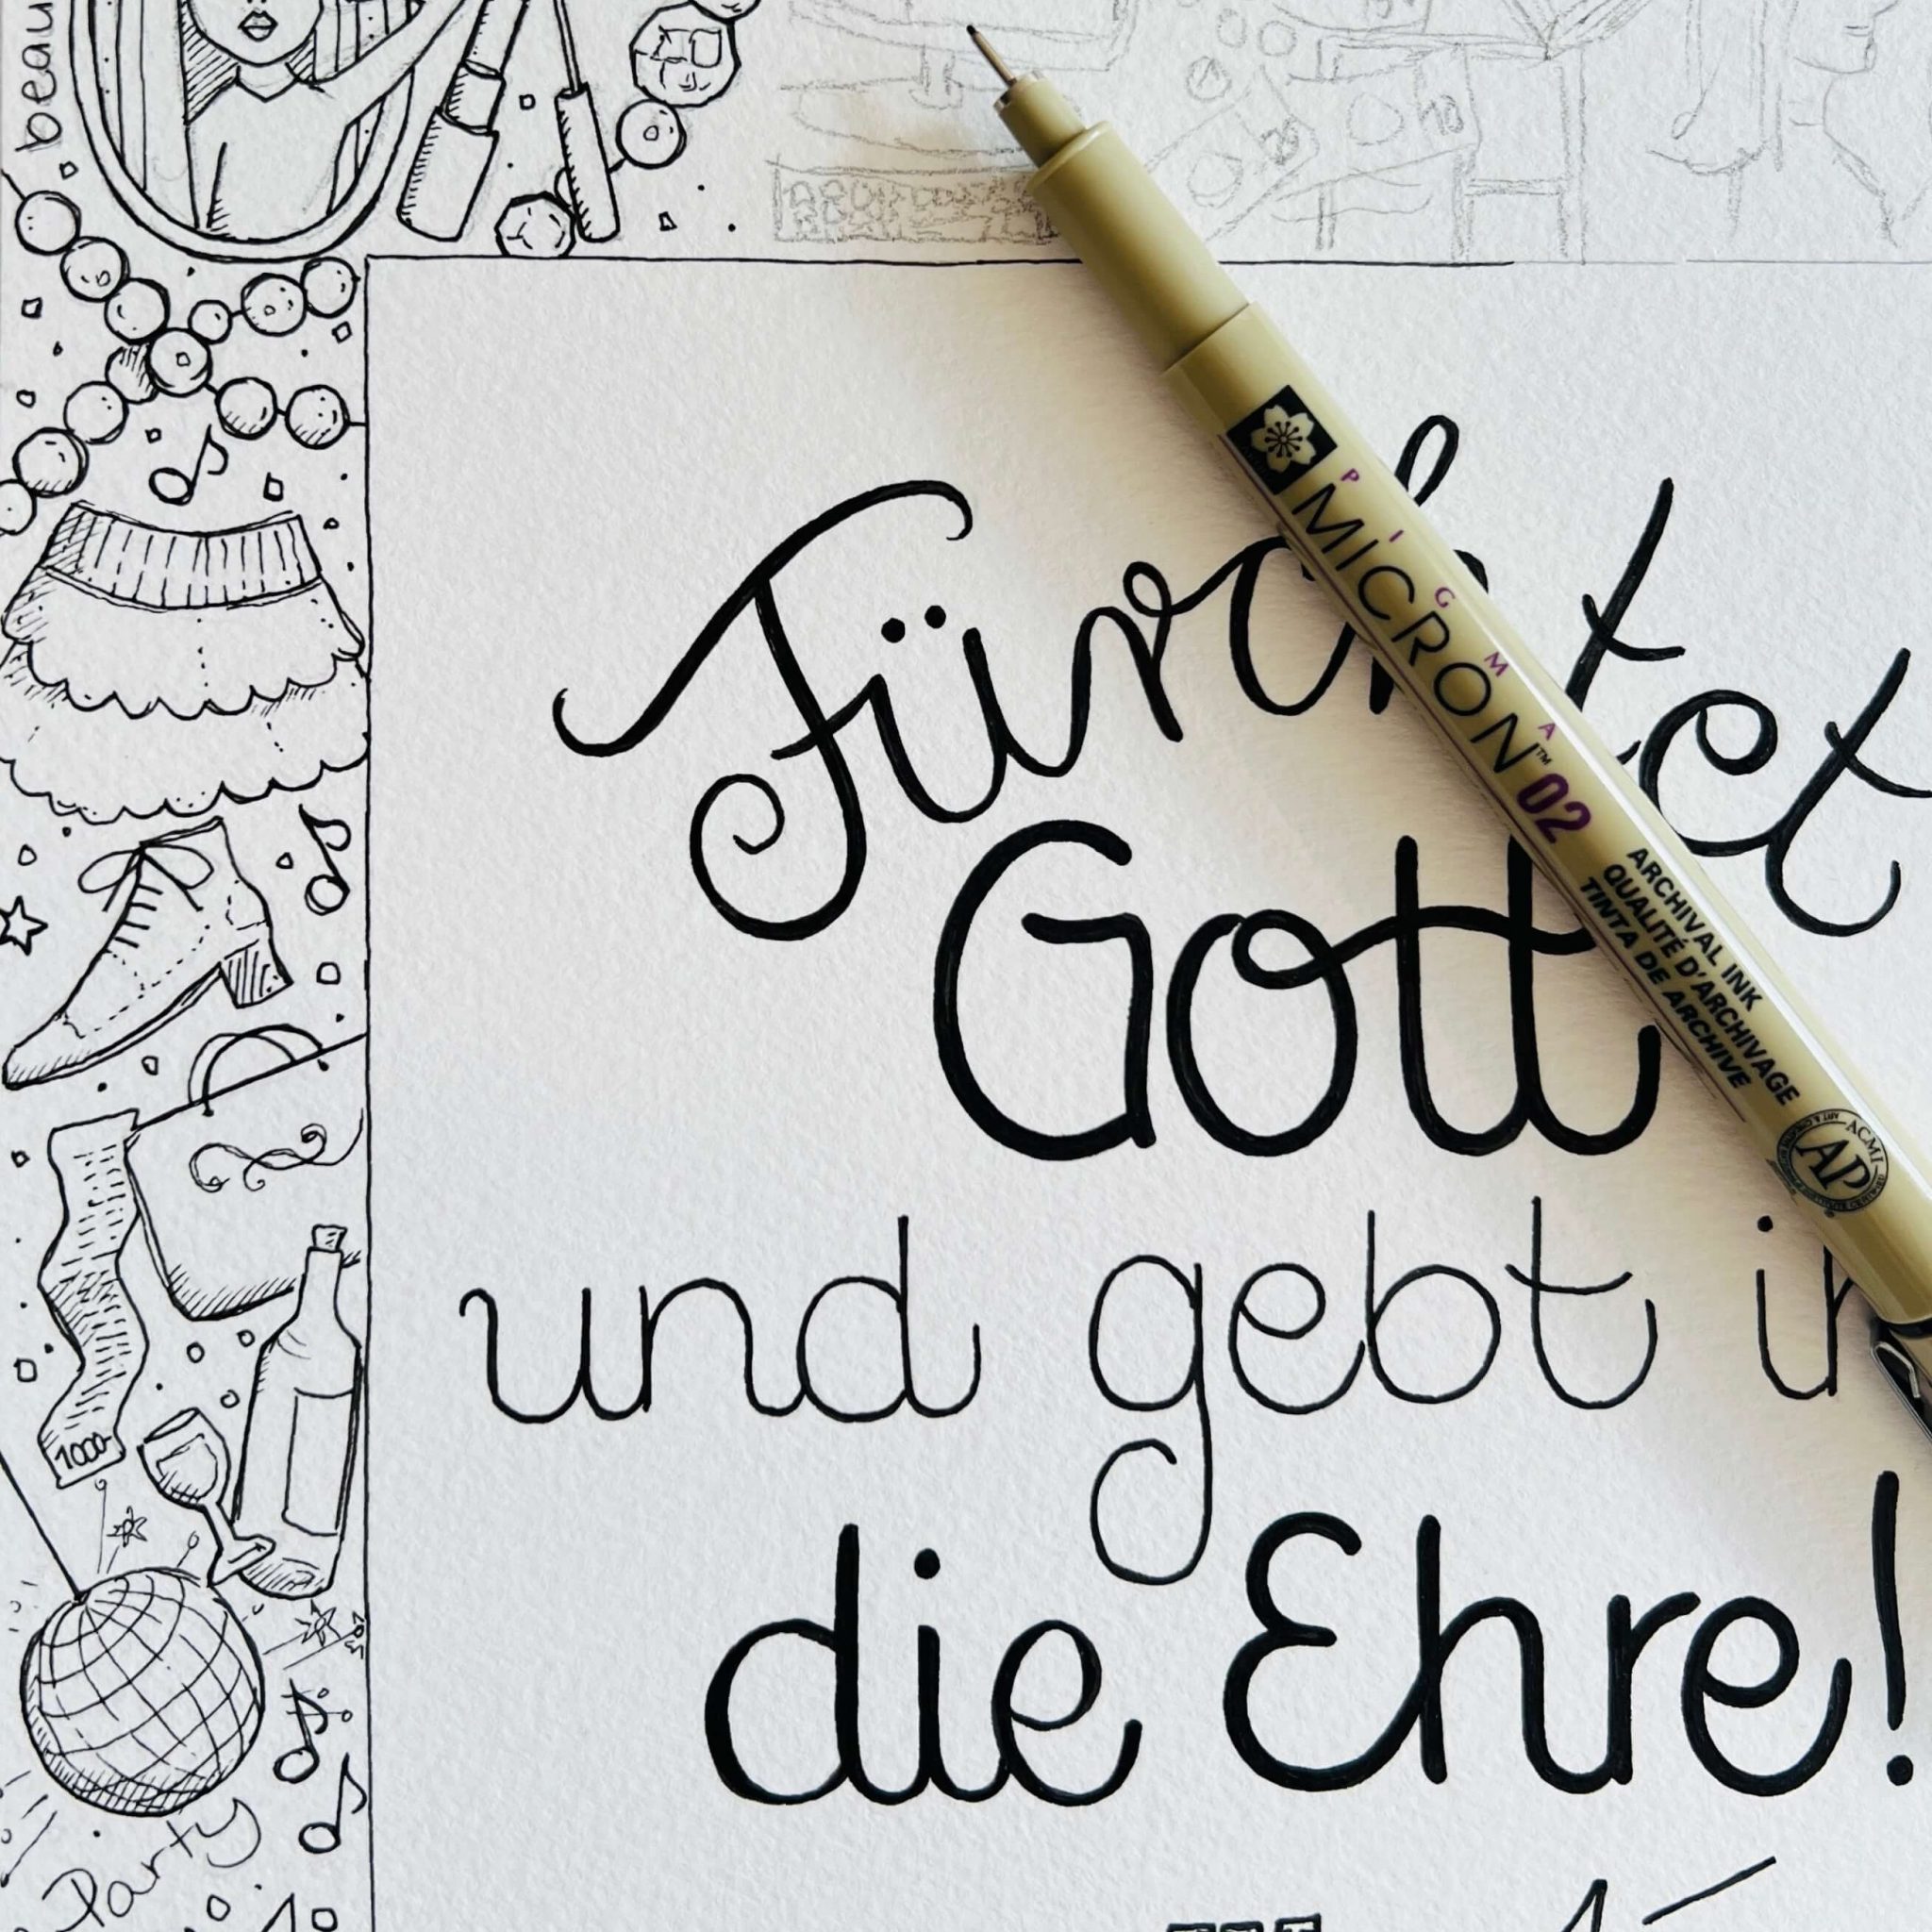 beau
Fürchtet
Gott
und gebt ih
die Ehre!
PIGMA
MICRON™ 02
ARCHIVAL INK
QUALITÉ D'ARCHIVAGE
TINTA DE ARCHIVE
ACMI
AP
1000-
Party